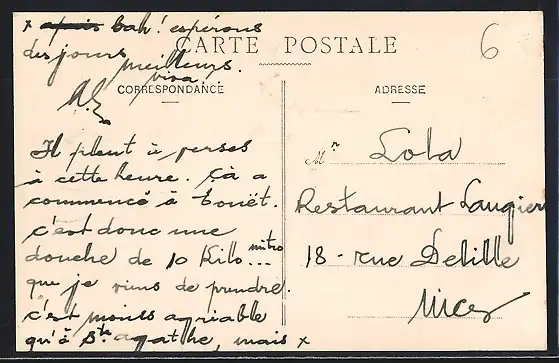 x ~~apais~~ bah! espérons
des jours meilleurs.
viva
CARTE POSTALE
6
CORRESPONDANCE
ADRESSE
Il pleut à verses
à cette heure. Çà a
commencé à Touët.
c'est donc une
douche de 10 Kilo mitro...
que je viens de prendre.
c'est moins agriable
qu'à Ste agathe, mais x
M r Lola
Restaurant Laugier
18 - rue Delille
Nice